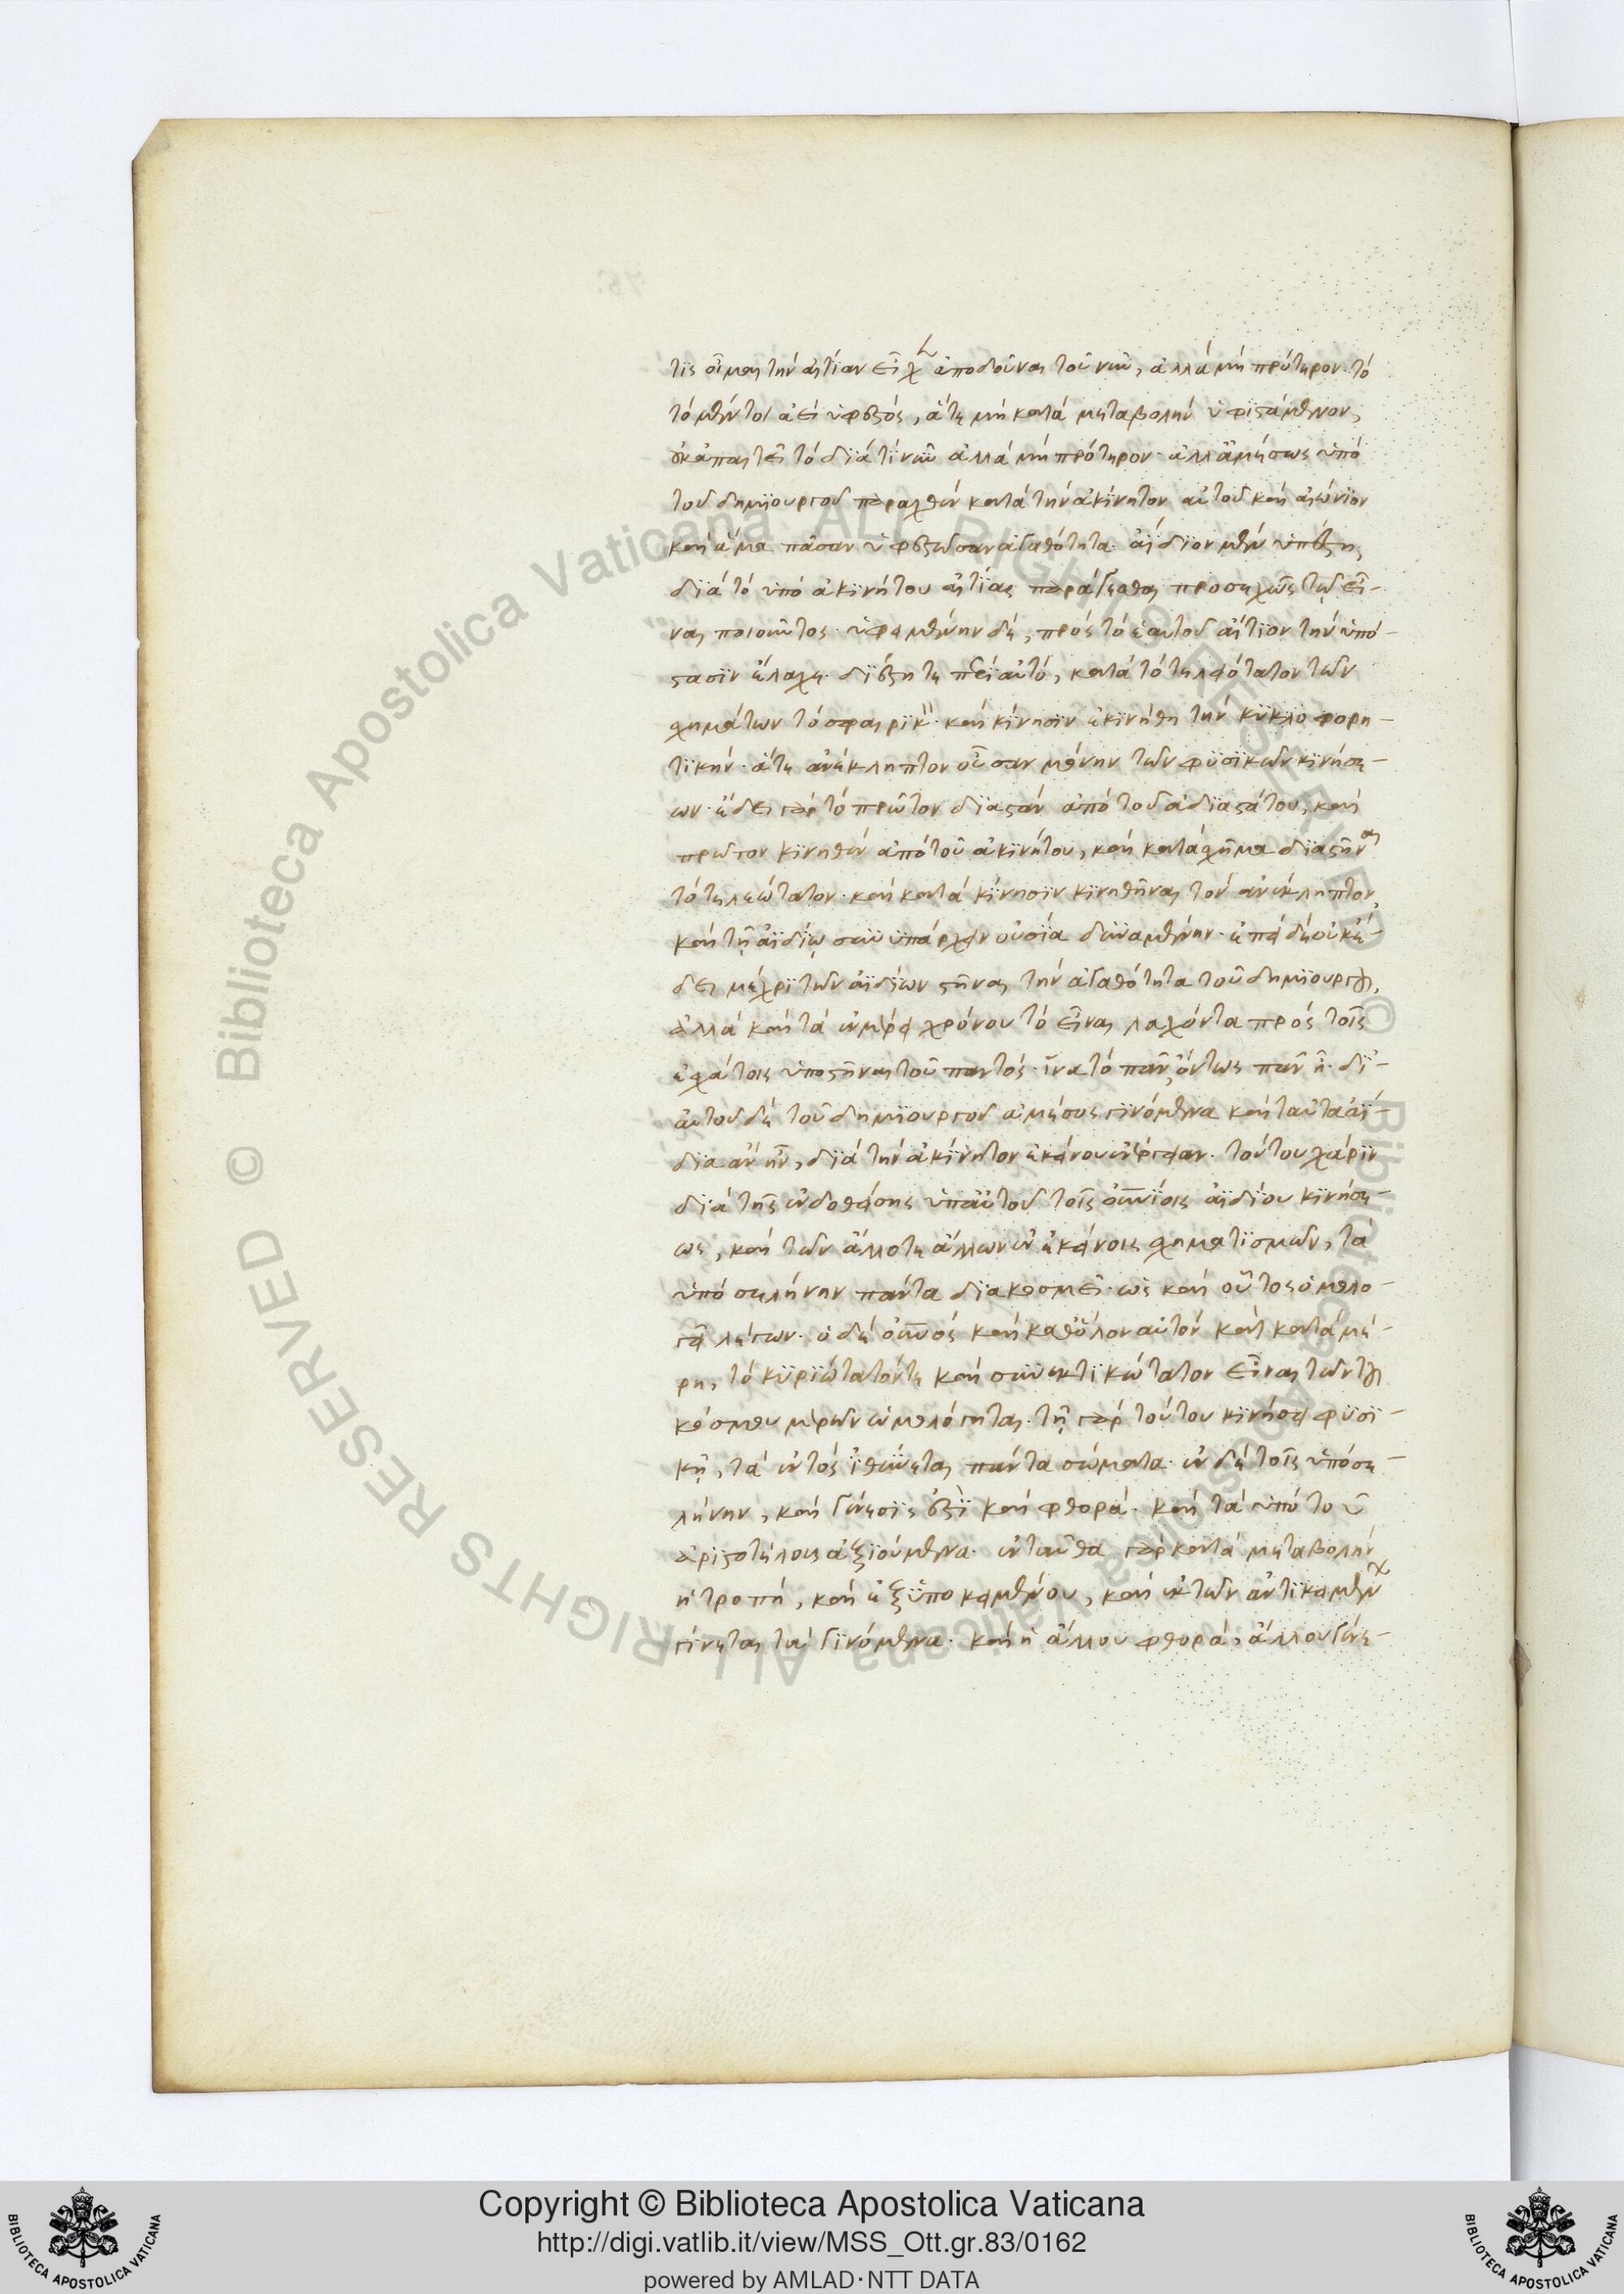 τις οἶμαι τὴν αἰτίαν εἶχεν ἀποδοῦναι τοῦ νῦν, ἀλλὰ μὴ πρότερον· τὸ
τὸ μέντοι ἀεὶ ὑφεστός, ἅτε μὴ κατὰ μεταβολὴν ὑφιστάμενον,
οὐκ ἀπαιτεῖ τὸ διὰ τί νῦν ἀλλὰ μὴ πρότερον· ἀλλ' ἀμέσως ὑπὸ
τοῦ δημιουργοῦ παραχθὲν κατὰ τὴν ἀκίνητον αὐτοῦ καὶ αἰώνιον
καὶ ἅμα πᾶσαν ὑφεστῶσαν ἀγαθότητα· ἀΐδιον μὲν ὑπέστη,
διὰ τὸ ὑπὸ ἀκινήτου αἰτίας παράγεσθαι προσεχῶς τῷ εἶ-
ναι ποιοῦντος· ὑφειμένην δὲ, πρὸς τὸ ἑαυτοῦ αἴτιον τὴν ὑπό-
στασιν ἔλαχε· διέστη τε περὶ αὐτό, κατὰ τὸ τελειότατον τῶν
σχημάτων τὸ σφαιρικόν· καὶ κίνησιν ἐκινήθη τὴν κυκλοφορη-
τικήν· ἅτε ἀνέκλειπτον οὖσαν μόνην τῶν φυσικῶν κινήσε-
ων· ἔδει γὰρ τὸ πρῶτον διαστὰν ἀπὸ τοῦ ἀδιαστάτου, καὶ
πρῶτον κινηθὲν ἀπὸ τοῦ ἀκινήτου, καὶ κατὰ σχῆμα διαστῆναι
τὸ τελεώτατον· καὶ κατὰ κίνησιν κινηθῆναι τὸν ἀνέκλειπτον,
καὶ τῇ ἀϊδίῳ συνυπάρχειν οὐσία δυναμένην· ἐπεὶ δὲ οὐκ ἔ-
δει μέχρι τῶν ἀϊδίων στῆναι τὴν ἀγαθότητα τοῦ δημιουργοῦ,
ἀλλὰ καὶ τὰ ἐν μέρει χρόνου τὸ εἶναι λαχόντα πρὸς τοῖς
ἐσχάτοις ὑποστῆναι τοῦ παντός· ἵνα τὸ πᾶν, ὄντως πᾶν ᾖ· δι'
αὐτοῦ δὲ τοῦ δημιουργοῦ ἀμέσως γινόμενα καὶ ταῦτα ἀΐ-
δια ἂν ἦν, διὰ τὴν ἀκίνητον ἐκείνου ἐνέργειαν· τούτου χάριν
διὰ τῆς ἐνδοθείσης ὑπ' αὐτοῦ τοῖς οὐρανίοις ἀϊδίου κινήσε-
ως, καὶ τῶν ἄλλοτε ἄλλων ἐν ἐκείνοις σχηματισμῶν, τὰ
ὑπὸ σελήνην πάντα διακοσμεῖ· ὡς καὶ οὗτος ὁμολο-
γεῖ λέγων· ὁ δὲ οὐρανὸς καὶ καθ' ὅλον αὐτὸν καὶ κατὰ μέ-
ρη, τὸ κυριώτατόν τε καὶ συνεκτικώτατον εἶναι τῶν τοῦ
κόσμου μερῶν ὡμολόγηται· τῇ γὰρ τούτου κινήσει φυσι-
κῇ, τὰ ἐντὸς ἰθύνεται πάντα σώματα· ἐν δὲ τοῖς ὑπὸ σε-
λήνην, καὶ γένεσις ἐστὶ καὶ φθορά· καὶ τὰ ὑπὸ τοῦ
ἀριστοτέλους ἀξιούμενα· ἐνταῦθα γὰρ κατὰ μεταβολὴν
ἢ τροπή, καὶ ἐξ ὑποκειμένου, καὶ ἐκ τῶν ἀντικειμένων
γίνεται τὰ γινόμενα· καὶ ἡ ἄλλου φθορά, ἄλλου γένε-
Copyright © Biblioteca Apostolica Vaticana
http://digi.vatlib.it/view/MSS_Ott.gr.83/0162
powered by AMLAD·NTT DATA